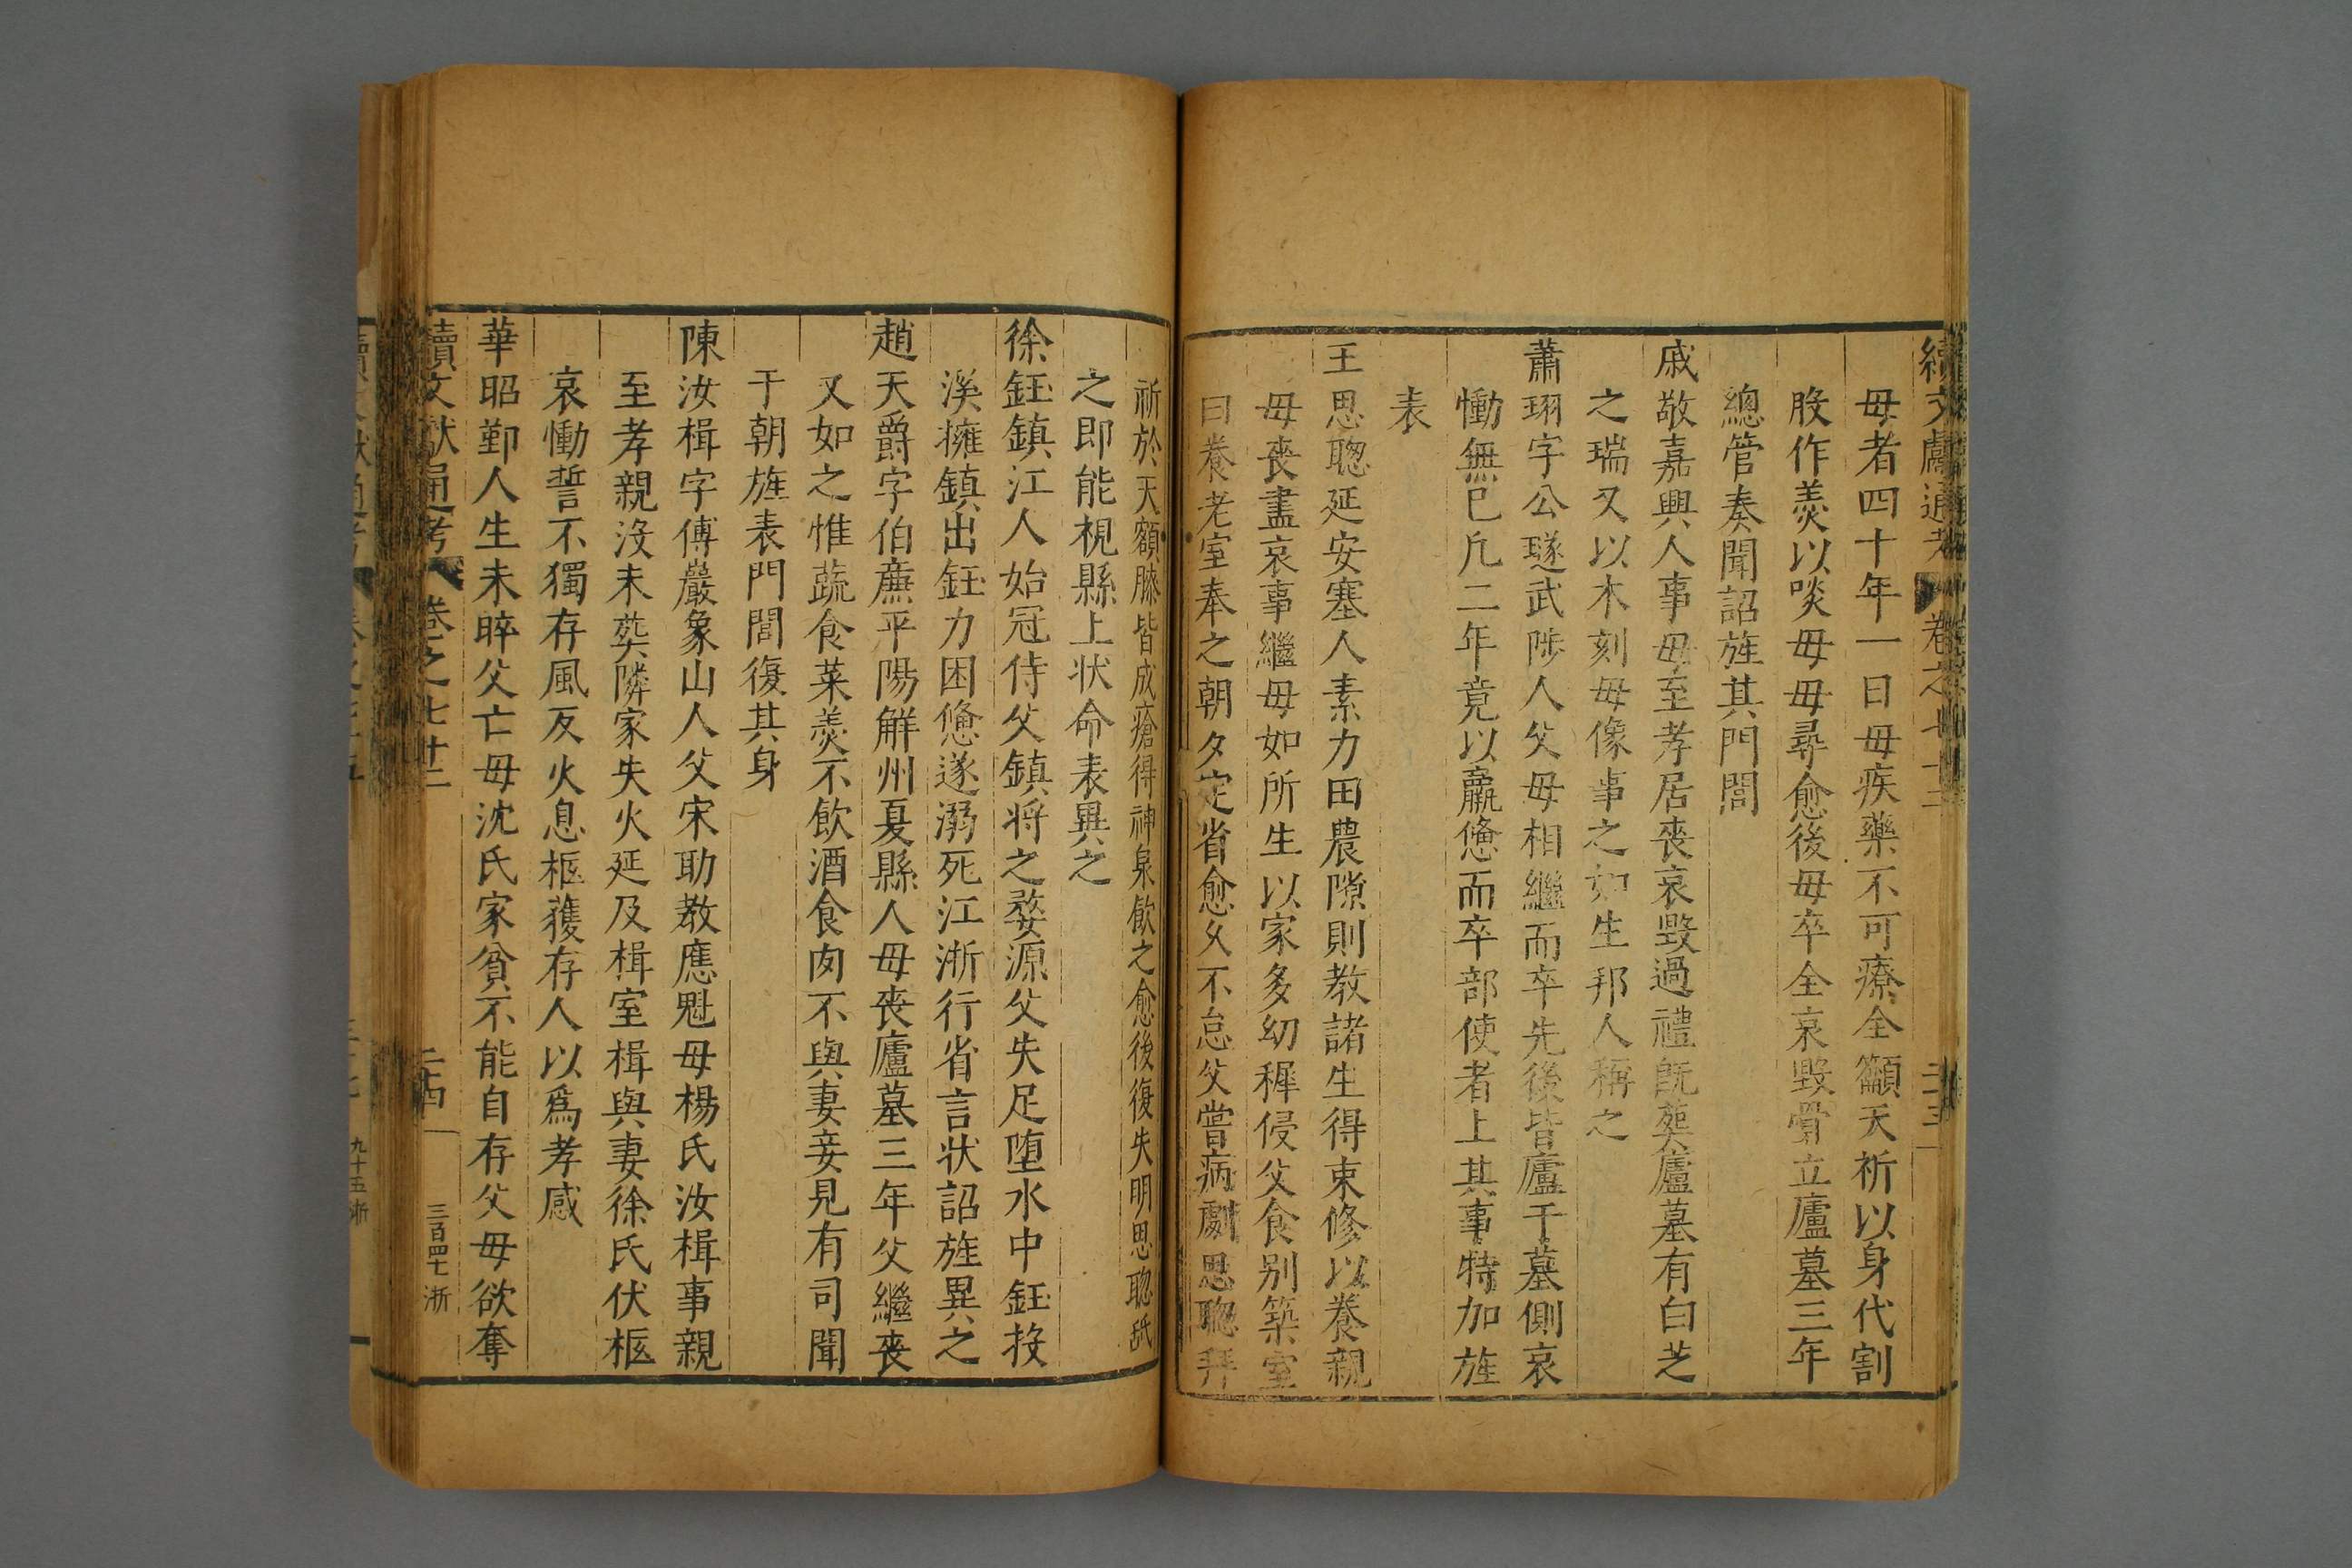 續文獻通考 卷之七十二 二十三
母者四十年一日母疾藥不可療全籲天祈以身代割
股作羹以啖母母尋愈後母卒全哀毀骨立廬墓三年
總管奏聞詔旌其門閭
戚敬嘉興人事母至孝居喪哀毀過禮既葬廬墓有白芝
之瑞又以木刻母像事之如生邦人稱之
蕭珝字公璲武陟人父母相繼而卒先後皆廬于墓側哀
慟無已凡二年竟以羸憊而卒部使者上其事特加旌
表
王思聰延安塞人素力田農隙則教諸生得束修以養親
母喪盡哀事繼母如所生以家多幼穉侵父食别築室
曰養老室奉之朝夕定省愈久不怠父嘗病劇思聰拜
祈於天額膝皆成瘡得神泉飲之愈後復失明思聰舐
之即能視縣上状命表異之
徐鈺鎮江人始冠侍父鎮将之婺源父失足堕水中鈺投
溪擁鎮出鈺力困憊遂溺死江浙行省言状詔旌異之
趙天爵字伯廉平陽觧州夏縣人母喪廬墓三年父繼喪
又如之惟蔬食菜羹不飲酒食肉不與妻妾見有司聞
于朝旌表門閭復其身
陳汝楫字傅巖象山人父宋助教應魁母楊氏汝楫事親
至孝親沒未葬隣家失火延及楫室楫與妻徐氏伏柩
哀慟誓不獨存風反火息柩獲存人以爲孝感
華昭鄞人生未晬父亡母沈氏家貧不能自存父母欲奪
續文獻通考 卷之七十二 二十四 三百四七 浙
九十五浙